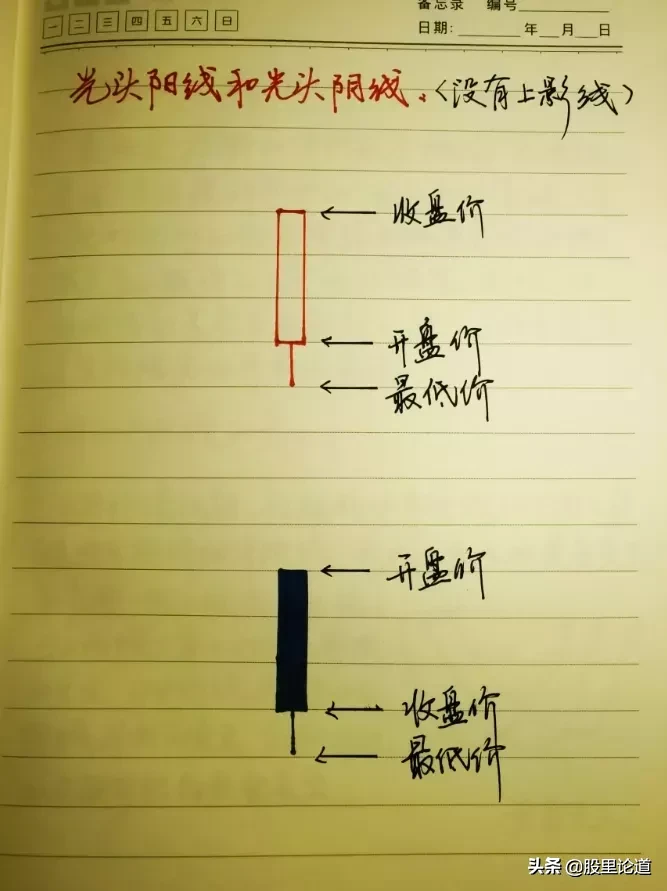 备忘录 编号
一 二 三 四 五 六 日
日期: 年 月 日
光头阳线和光头阴线.(没有上影线)
收盘价
开盘价
最低价
开盘价
收盘价
最低价
头条 @股里论道